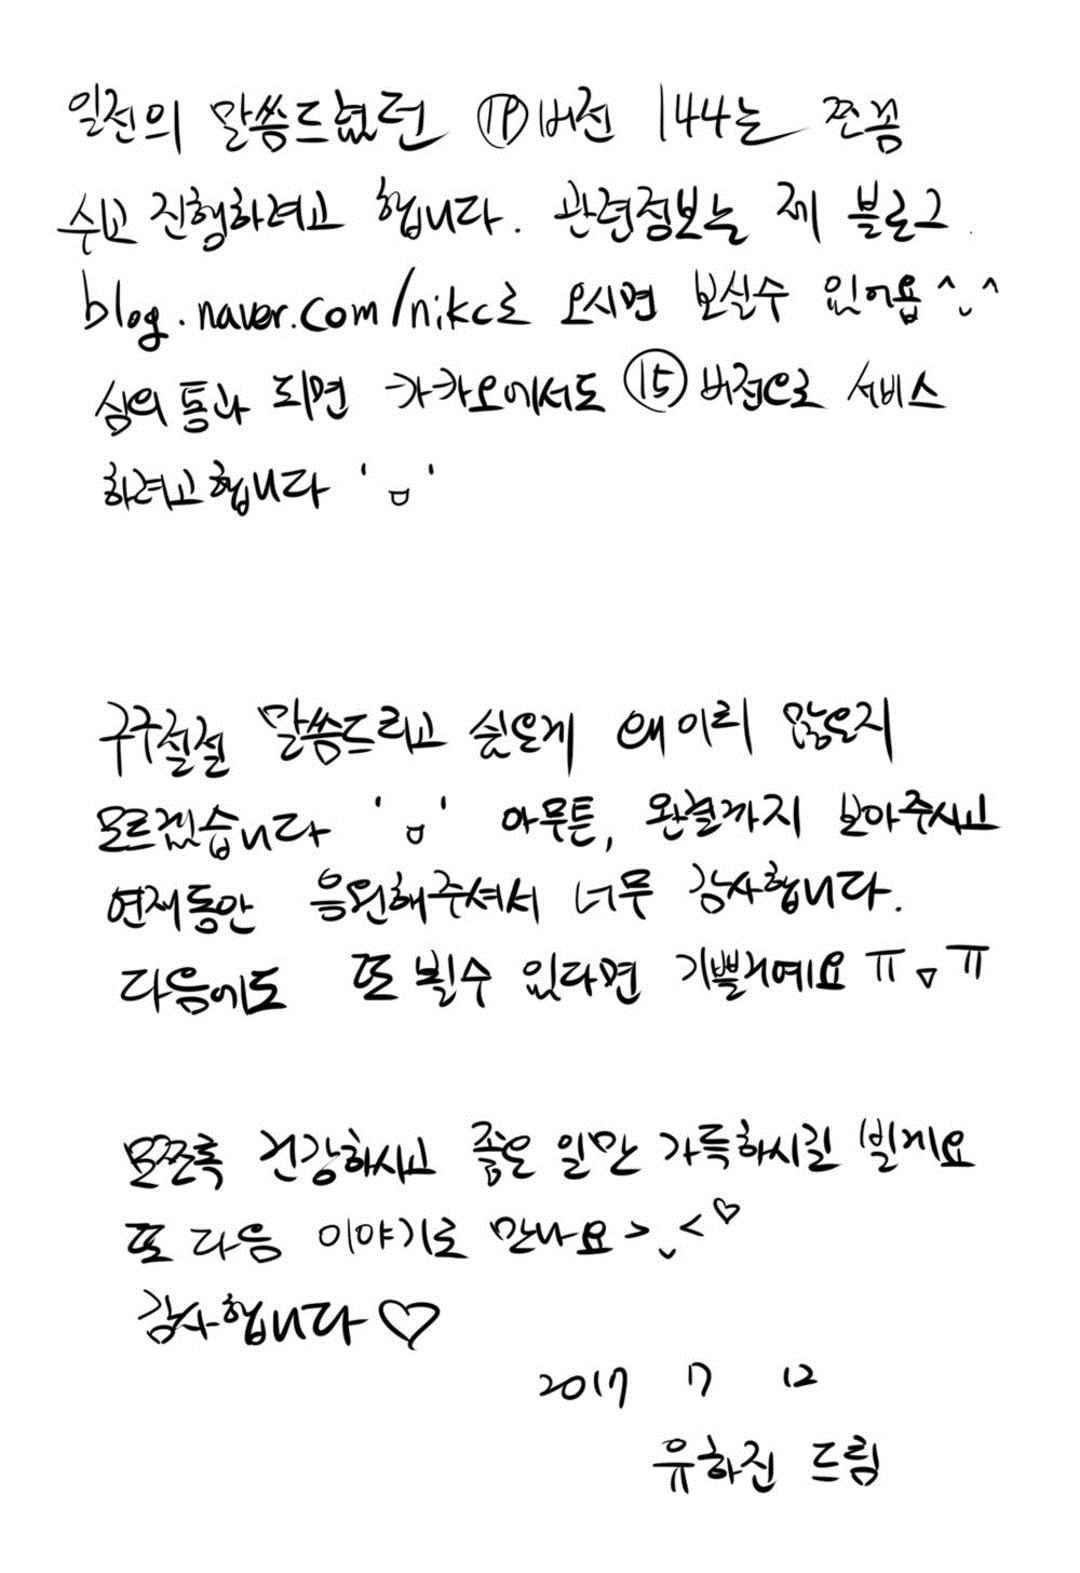 일전의 말씀드렸던 ⑲버전 144는 쪼꼼
쉬고 진행하려고 합니다. 관련정보는 제 블로그
blog.naver.com/nikc로 오시면 보실수 있어욥^ᴗ^
심의 통과 되면 카카오에서도 ⑮버전으로 서비스
하려고합니다 'ㅁ'
구구절절 말씀드리고 싶은게 왜 이리 많은지
모르겠습니다 'ㅁ' 아무튼, 완결까지 보아주시고
연재동안 응원해주셔서 너무 감사합니다.
다음에도 또 뵐수 있다면 기쁠거예요 ㅠㅁㅠ
모쪼록 건강하시고 좋은 일만 가득하시길 빌게요
또 다음 이야기로 만나요 >ᴗ<♡
감사합니다♡
2017 7 12
유하진 드림